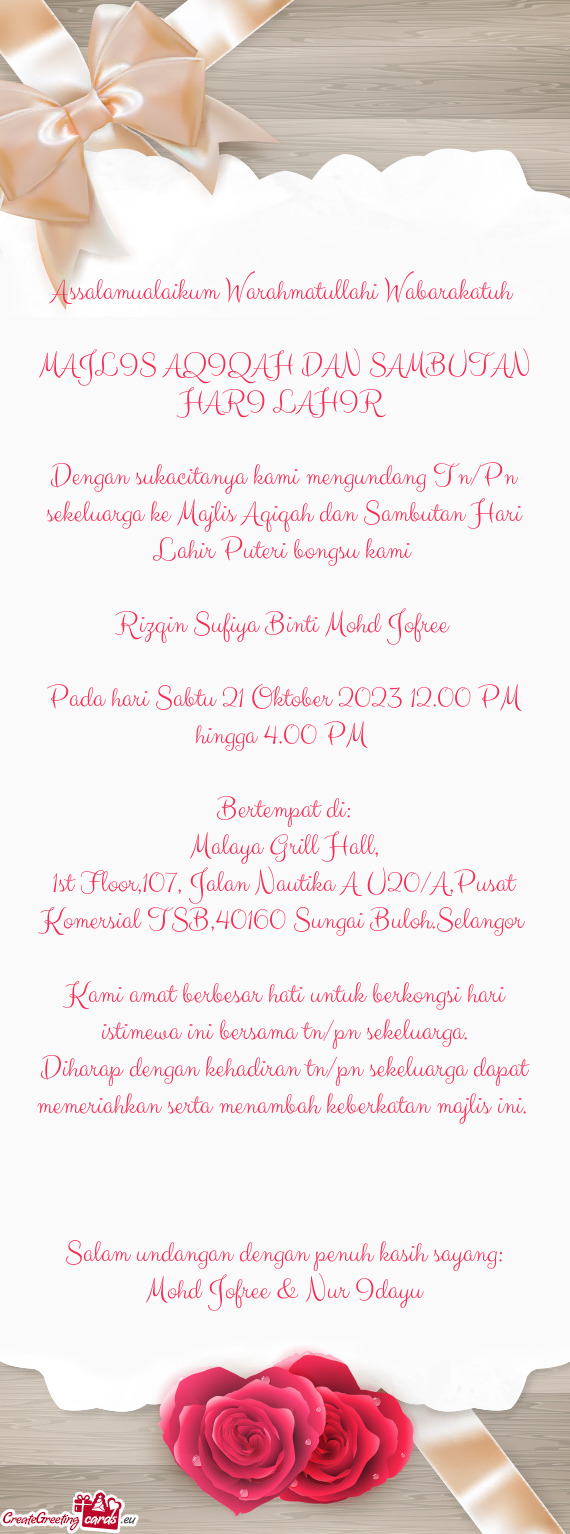 Assalamualaikum Warahmatullahi Wabarakatuh
MAJLIS AQIQAH DAN SAMBUTAN
HARI LAHIR
Dengan sukacitanya kami mengundang Tn/Pn
sekeluarga ke Majlis Aqiqah dan Sambutan Hari
Lahir Puteri bongsu kami
Rizqin Sufiya Binti Mohd Jofree
Pada hari Sabtu 21 Oktober 2023 12.00 PM
hingga 4.00 PM
Bertempat di:
Malaya Grill Hall,
1st Floor,107, Jalan Nautika A U20/A,Pusat
Komersial TSB,40160 Sungai Buloh.Selangor
Kami amat berbesar hati untuk berkongsi hari
istimewa ini bersama tn/pn sekeluarga.
Diharap dengan kehadiran tn/pn sekeluarga dapat
memeriahkan serta menambah keberkatan majlis ini.
Salam undangan dengan penuh kasih sayang:
Mohd Jofree & Nur Idayu
CreateGreetingcards.eu